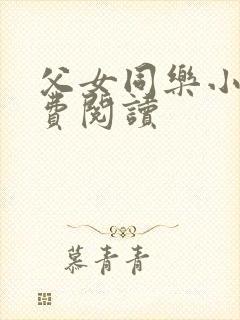 父女同樂小
費閱讀
慕青青